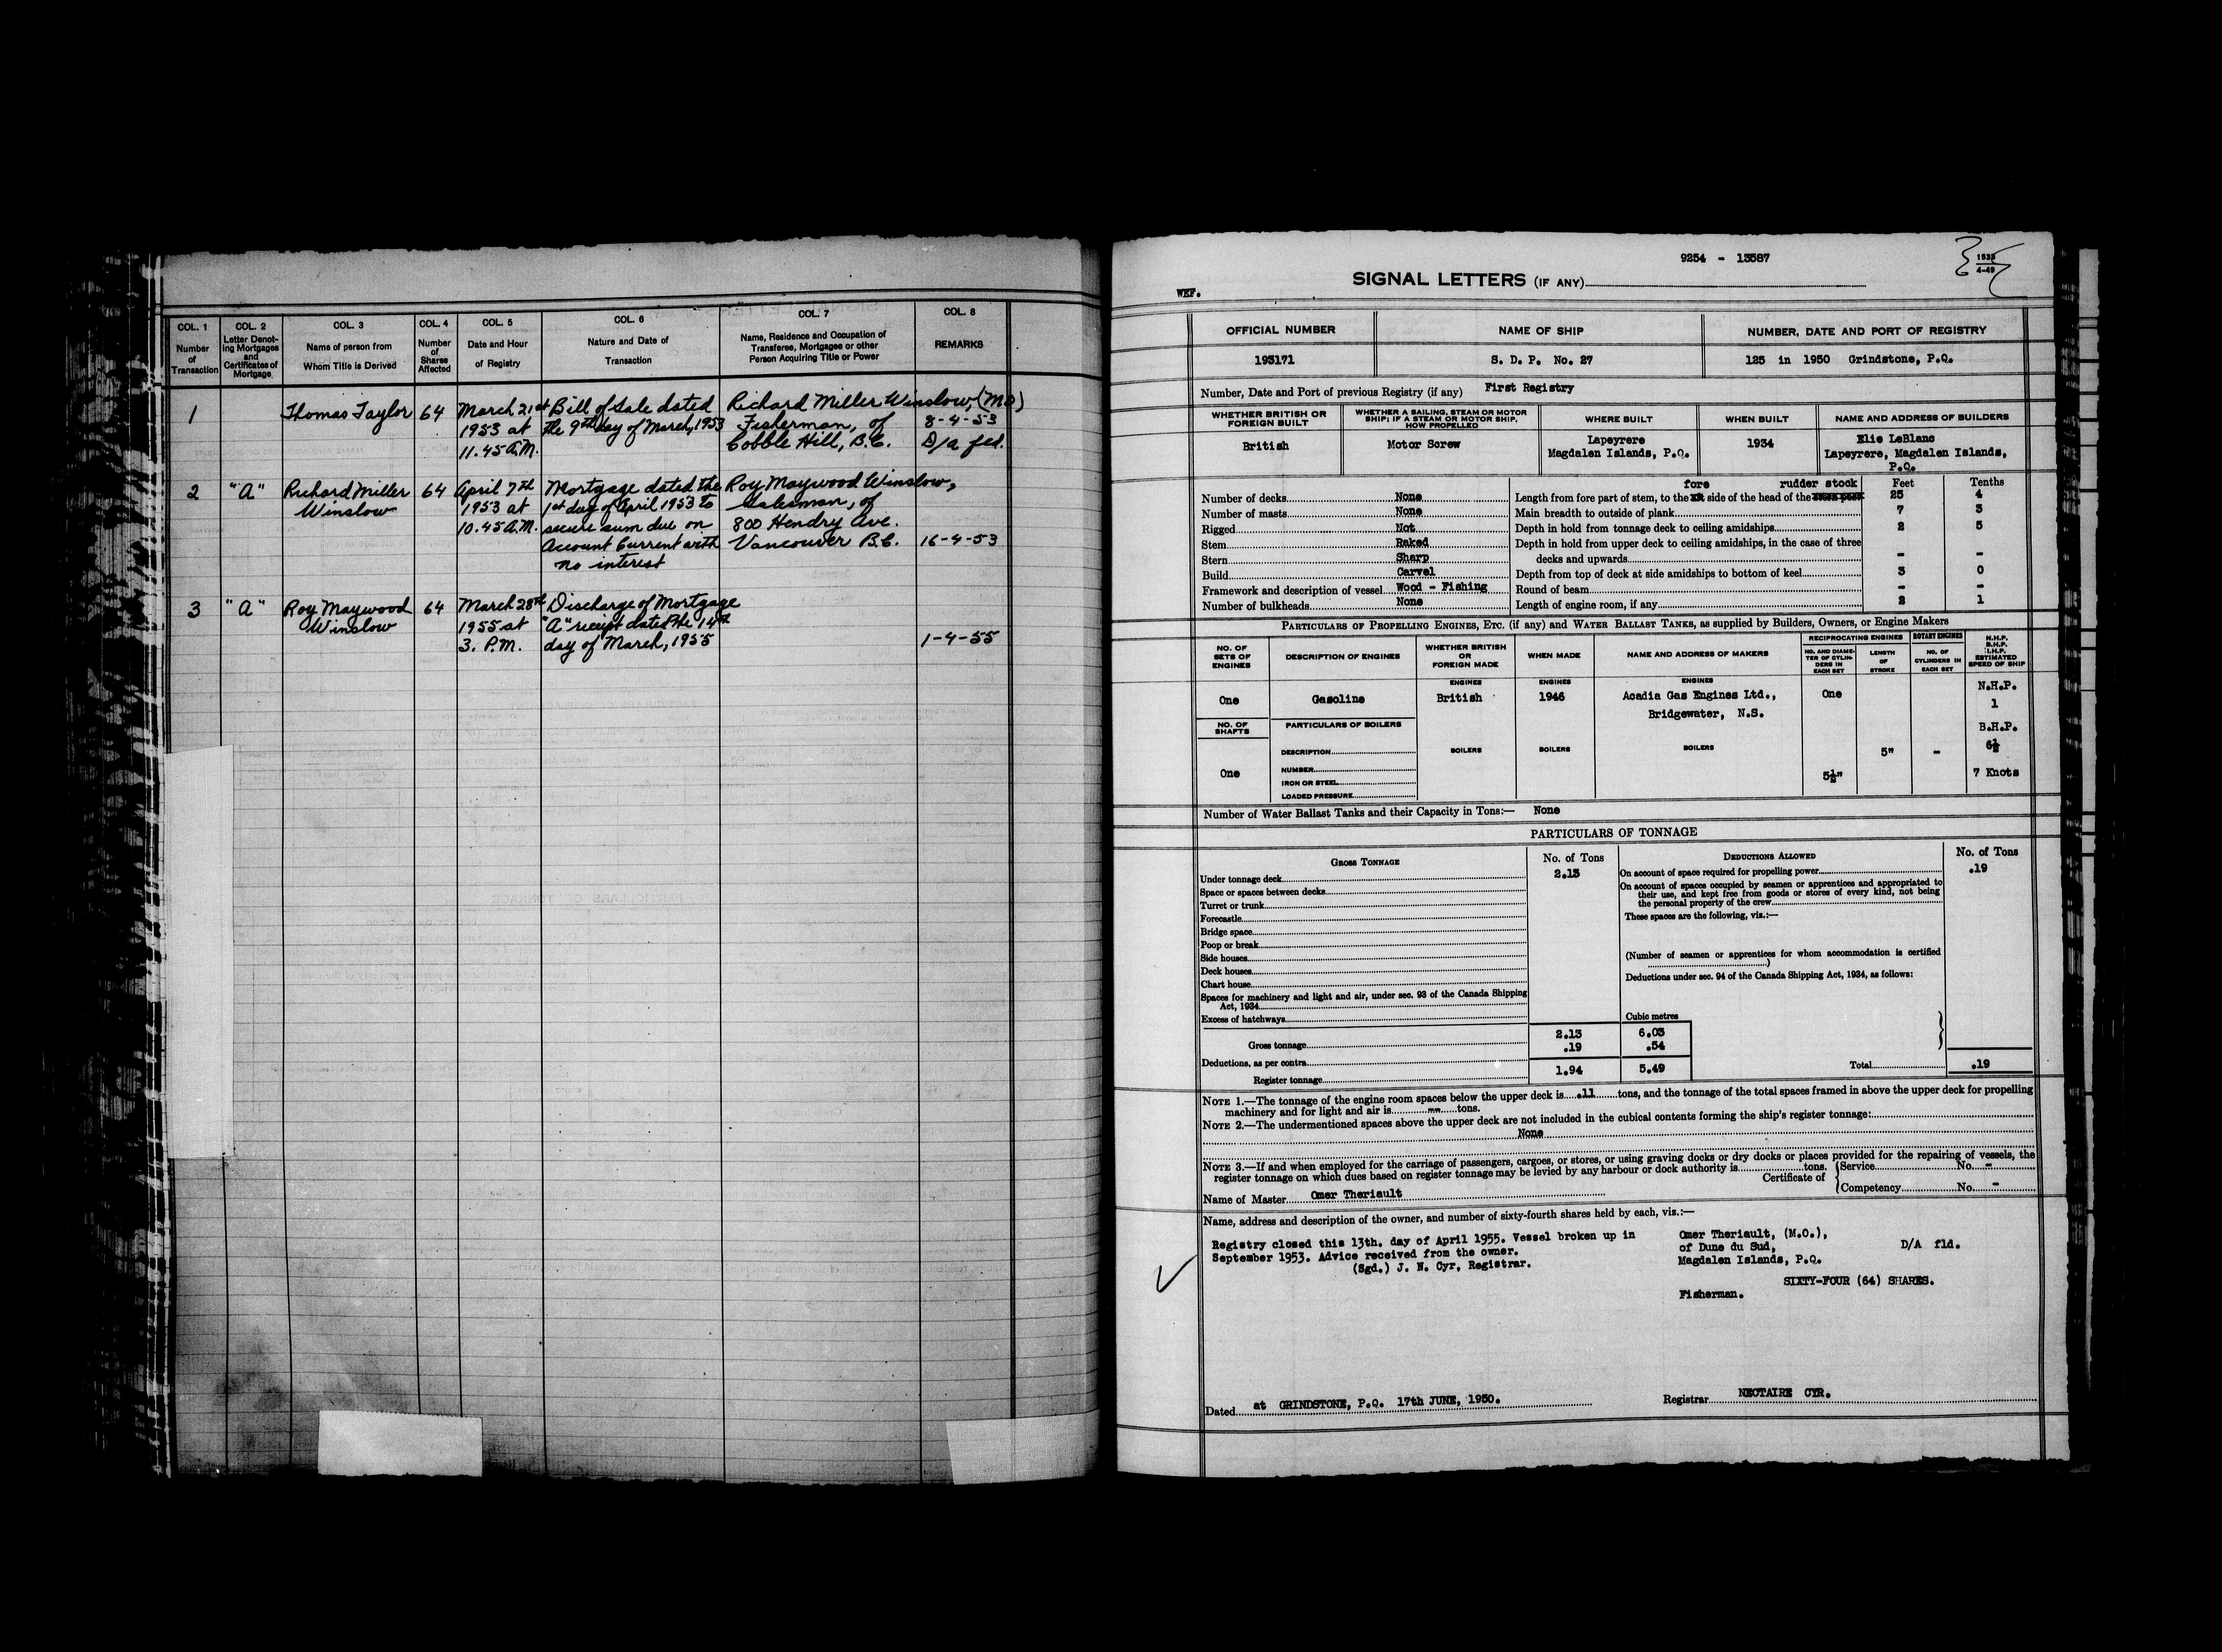 COL. 1 COL. 2 COL. 3 COL. 4 COL. 5 COL. 6 COL. 7 COL. 8
Number of Transaction
Letter Denoting Mortgages and Certificates of Mortgage
Name of person from Whom Title is Derived
Number of Shares Affected
Date and Hour of Registry
Nature and Date of Transaction
Name, Residence and Occupation of Transferee, Mortgagee or other Person Acquiring Title or Power
REMARKS
1 Thomas Taylor 64 March 21st Bill of Sale dated Richard Miller Winslow, (M.O.)
1953 at the 9th day of March, 1953 Fisherman, of 8-4-53
11.45 A.M. Cobble Hill, B.C. D/a fld.
2 "A" Richard Miller 64 April 7th Mortgage dated the Roy Maywood Winslow,
Winslow 1953 at 1st day of April 1953 to Salesman, of
10.45 A.M. secure sum due on 800 Hendry Ave.
Account Current with Vancouver B.C. 16-4-53
no interest
3 "A" Roy Maywood 64 March 28th Discharge of Mortgage
Winslow 1955 at "A" receipt dated the 14th
3. P.M. day of March, 1955 1-4-55
9254 - 13587
1535
4-49
SIGNAL LETTERS (IF ANY)
WEF.
OFFICIAL NUMBER NAME OF SHIP NUMBER, DATE AND PORT OF REGISTRY
193171 S. D. P. No. 27 125 in 1950 Grindstone, P.Q.
Number, Date and Port of previous Registry (if any) First Registry
WHETHER BRITISH OR FOREIGN BUILT
WHETHER A SAILING, STEAM OR MOTOR SHIP; IF A STEAM OR MOTOR SHIP, HOW PROPELLED
WHERE BUILT
WHEN BUILT
NAME AND ADDRESS OF BUILDERS
British Motor Screw Lapeyrere 1934 Elie LeBlanc
Magdalen Islands, P.Q. Lapeyrere, Magdalen Islands,
P.Q.
fore rudder stock Feet Tenths
Number of decks None Length from fore part of stem, to the side of the head of the 25 4
Number of masts None Main breadth to outside of plank 7 3
Rigged Not Depth in hold from tonnage deck to ceiling amidships 2 5
Stem Raked Depth in hold from upper deck to ceiling amidships, in the case of three
Stern Sharp decks and upwards - -
Build Carvel Depth from top of deck at side amidships to bottom of keel 3 0
Framework and description of vessel Wood - Fishing Round of beam - -
Number of bulkheads None Length of engine room, if any 2 1
PARTICULARS OF PROPELLING ENGINES, ETC. (if any) and WATER BALLAST TANKS, as supplied by Builders, Owners, or Engine Makers
NO. OF SETS OF ENGINES
DESCRIPTION OF ENGINES
WHETHER BRITISH OR FOREIGN MADE
WHEN MADE
NAME AND ADDRESS OF MAKERS
RECIPROCATING ENGINES
NO. AND DIAMETER OF CYLINDERS IN EACH SET
LENGTH OF STROKE
ROTARY ENGINES
NO. OF CYLINDERS IN EACH SET
N.H.P.
B.H.P.
I.H.P.
ESTIMATED SPEED OF SHIP
ENGINES ENGINES ENGINES
One Gasoline British 1946 Acadia Gas Engines Ltd., One N.H.P.
Bridgewater, N.S. 1
NO. OF SHAFTS PARTICULARS OF BOILERS B.H.P.
DESCRIPTION BOILERS BOILERS BOILERS 5" - 6½
One NUMBER 5½" 7 Knots
IRON OR STEEL
LOADED PRESSURE
Number of Water Ballast Tanks and their Capacity in Tons:— None
PARTICULARS OF TONNAGE
GROSS TONNAGE No. of Tons DEDUCTIONS ALLOWED No. of Tons
Under tonnage deck 2.13 On account of space required for propelling power .19
Space or spaces between decks On account of spaces occupied by seamen or apprentices and appropriated to
Turret or trunk their use, and kept free from goods or stores of every kind, not being
Forecastle the personal property of the crew
Bridge space These spaces are the following, viz.:—
Poop or break
Side houses (Number of seamen or apprentices for whom accommodation is certified )
Deck houses Deductions under sec. 94 of the Canada Shipping Act, 1934, as follows:
Chart house
Spaces for machinery and light and air, under sec. 93 of the Canada Shipping
Act, 1934
Excess of hatchways Cubic metres
2.13 6.03
Gross tonnage .19 .54
Deductions, as per contra Total .19
Register tonnage 1.94 5.49
NOTE 1.—The tonnage of the engine room spaces below the upper deck is .11 tons, and the tonnage of the total spaces framed in above the upper deck for propelling
machinery and for light and air is -- tons.
NOTE 2.—The undermentioned spaces above the upper deck are not included in the cubical contents forming the ship's register tonnage:
None
NOTE 3.—If and when employed for the carriage of passengers, cargoes, or stores, or using graving docks or dry docks or places provided for the repairing of vessels, the
register tonnage on which dues based on register tonnage may be levied by any harbour or dock authority is tons.
Certificate of Service No. -
Competency No. -
Name of Master Omer Theriault
Name, address and description of the owner, and number of sixty-fourth shares held by each, viz.:—
Registry closed this 13th. day of April 1955. Vessel broken up in
September 1953. Advice received from the owner.
(Sgd.) J. N. Cyr, Registrar.
Omer Theriault, (M.O.),
of Dune du Sud, D/A fld.
Magdalen Islands, P.Q.
SIXTY-FOUR (64) SHARES.
Fisherman.
Dated at GRINDSTONE, P.Q. 17th JUNE, 1950. Registrar NECTAIRE CYR.